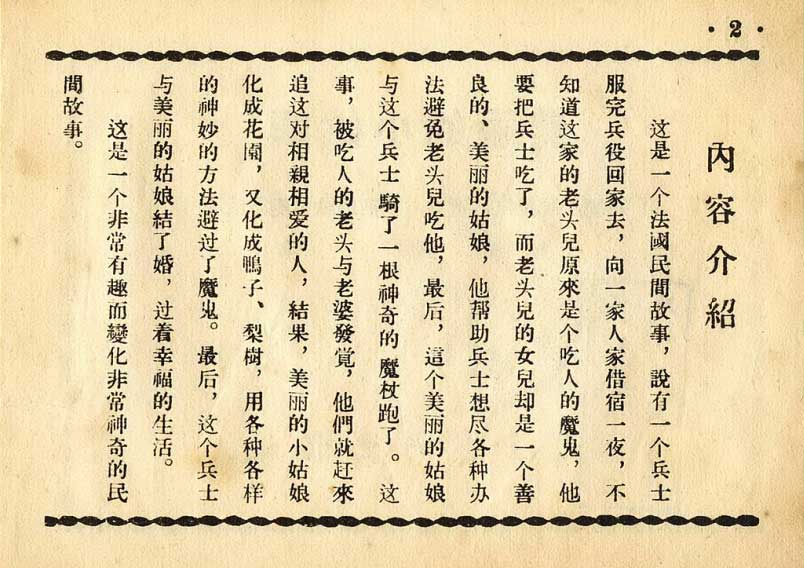 ·2·
內容介紹
这是一个法國民間故事，說有一个兵士
服完兵役回家去，向一家人家借宿一夜，不
知道这家的老头兒原來是个吃人的魔鬼，他
要把兵士吃了，而老头兒的女兒却是一个善
良的、美丽的姑娘，他帮助兵士想尽各种办
法避免老头兒吃他，最后，這个美丽的姑娘
与这个兵士騎了一根神奇的魔杖跑了。这
事，被吃人的老头与老婆發覚，他們就赶來
追这对相親相爱的人，結果，美丽的小姑娘
化成花園，又化成鴨子、梨樹，用各种各样
的神妙的方法避过了魔鬼。最后，这个兵士
与美丽的姑娘結了婚，过着幸福的生活。
这是一个非常有趣而變化非常神奇的民
間故事。